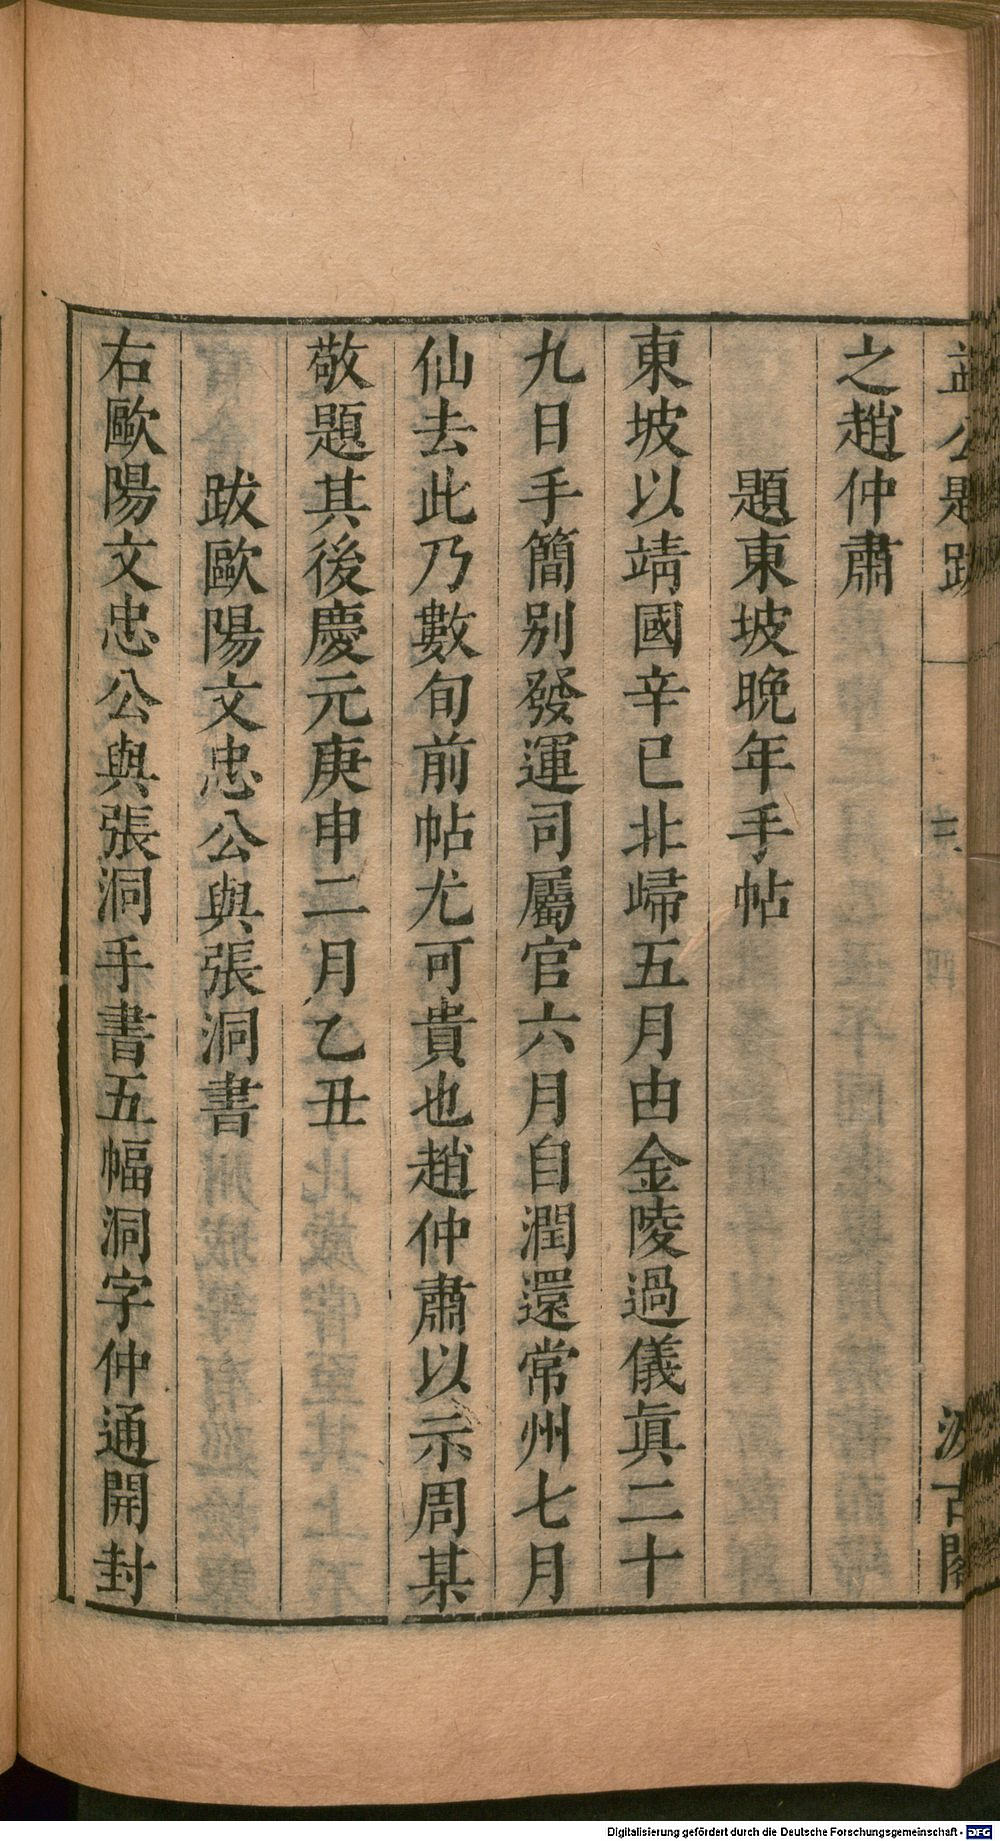 益公題跋
汲古閣
之趙仲肅
題東坡晚年手帖
東坡以靖國辛巳北歸五月由金陵過儀眞二十
九日手簡別發運司屬官六月自潤還常州七月
仙去此乃數旬前帖尤可貴也趙仲肅以示周某
敬題其後慶元庚申二月乙丑
跋歐陽文忠公與張洞書
右歐陽文忠公與張洞手書五幅洞字仲通開封
Digitalisierung gefördert durch die Deutsche Forschungsgemeinschaft - DFG